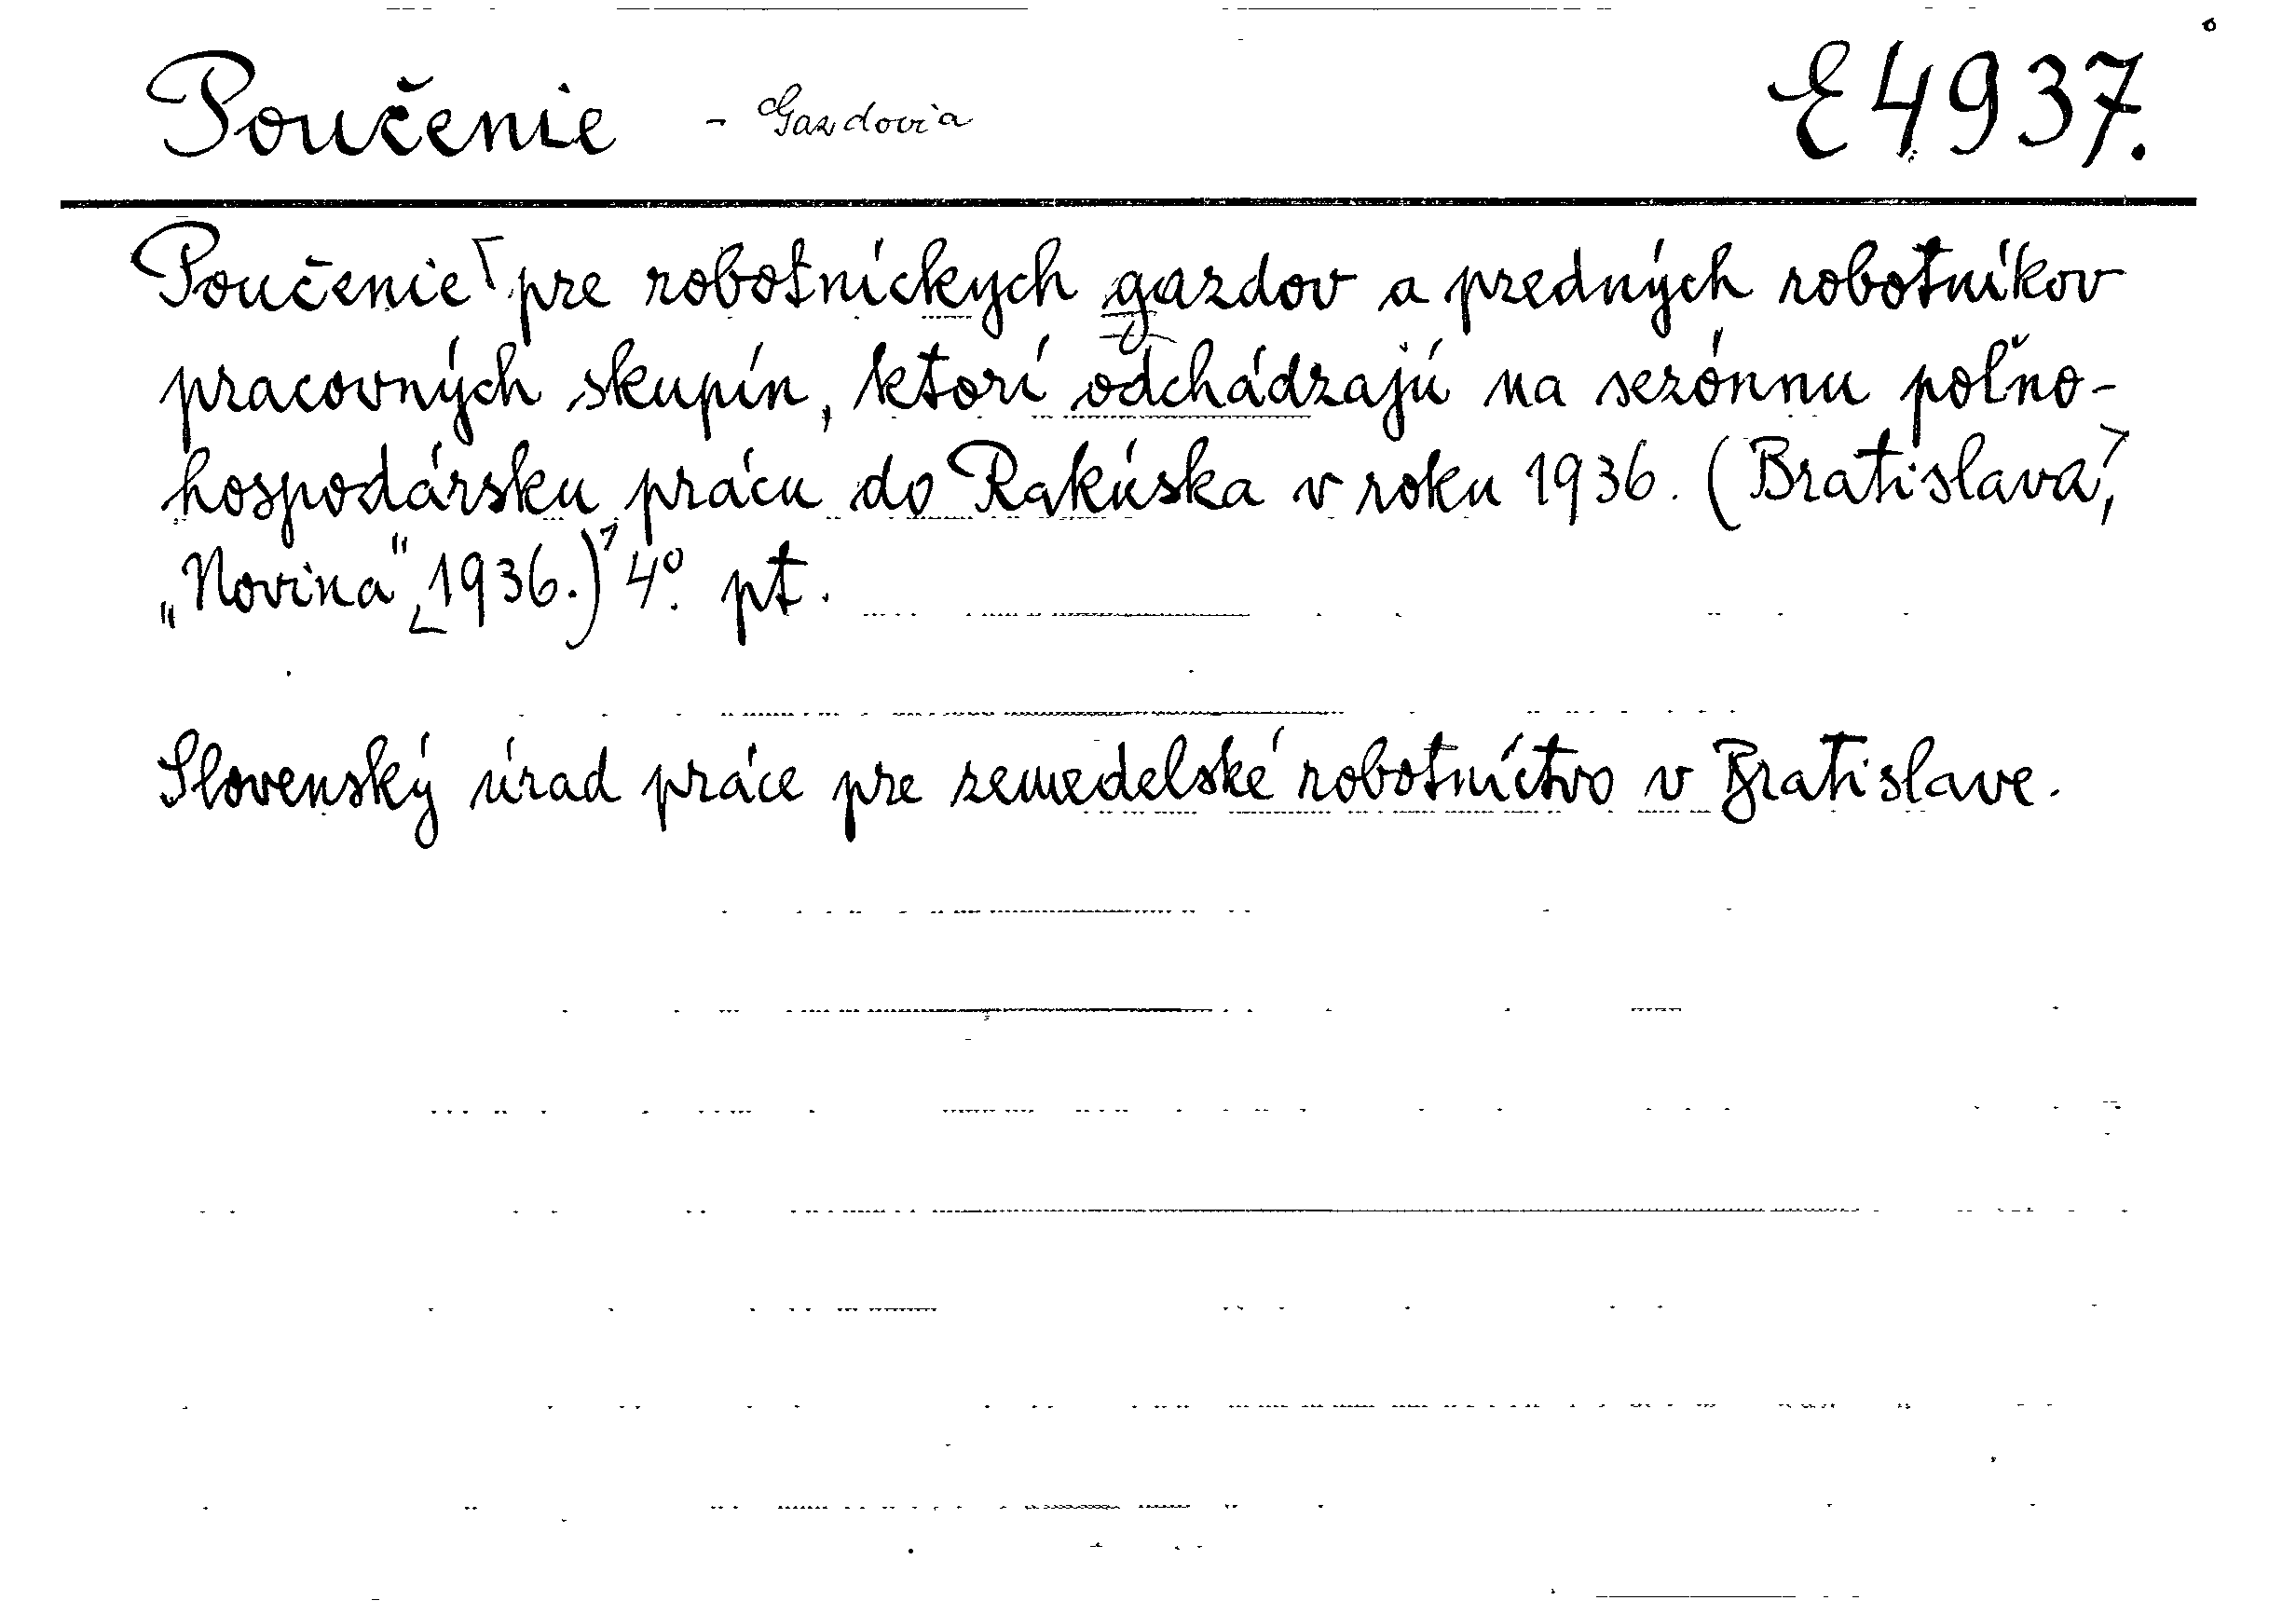 Poučenie - Gazdovia E 4937.
Poučenie pre robotníckych gazdov a predných robotníkov
pracovných skupín, ktorí odchádzajú na sezónnu poľno-
hospodársku prácu do Rakúska v roku 1936. (Bratislava,
„Novina“, 1936.) 4º. pt.
Slovenský úrad práce pre zemedelské robotníctvo v Bratislave.